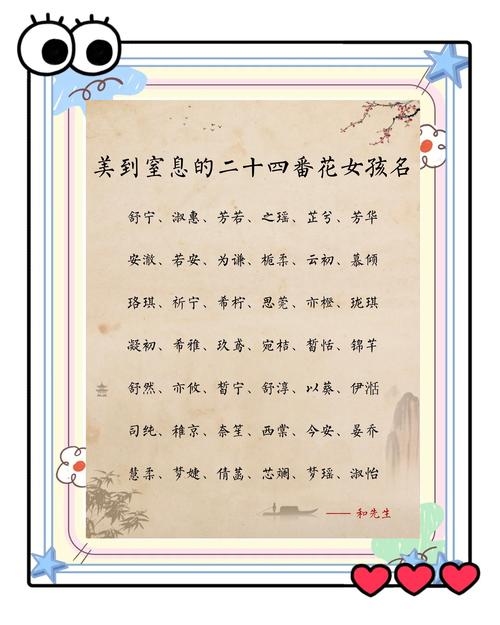 美到窒息的二十四番花女孩名
舒宁、淑惠、芳若、之瑶、芷兮、芳华
安澈、若安、为谦、栀柔、云初、慕倾
珞琪、祈宁、希柠、思莞、亦橙、珑琪
凝初、希雅、玖鸢、宛桔、暂恬、锦芊
舒然、亦攸、暂宁、舒淳、以葵、伊湉
司纯、稚京、奈笙、西棠、今安、晏乔
慧柔、梦婕、倩菡、芯斓、梦瑶、淑怡
—— 和先生